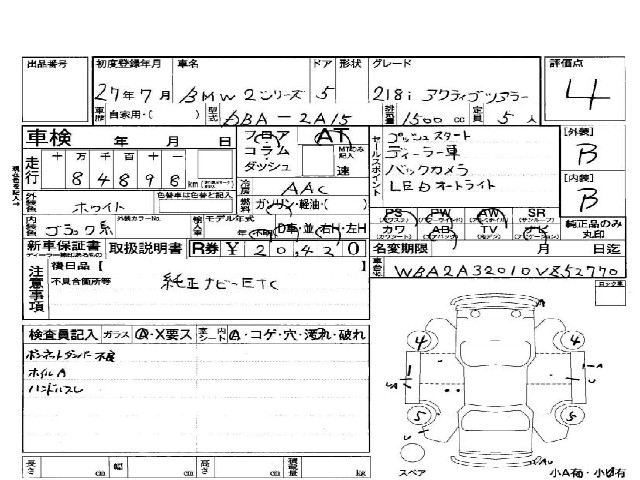 出品番号 初度登録年月 車名 ドア 形状 グレード 評価点
27年7月 BMW 2シリーズ 5 218i アクティブツアラー 4
車歴 自家用・( ) 型式 DBA-2A15 排気量 1500 cc 定員 5 人
車検 年 月 日 フロア AT
コラム MTのみ記入
ダッシュ 速
走行 十 万 千 百 十 一
8 4 8 9 8 km
冷房 AAC
外装色 ホワイト 色替車は色替と記入 燃料 ガソリン・軽油・( )
内装色 ブラック系 外装カラーNo. 輸入車 モデル年式 年(不明) D車・並 右H・左H
セールスポイント
プッシュスタート
ディーラー車
バックカメラ
LEDオートライト
[外装] B
[内装] B
PS PW AW SR
カワ AB TV ナビ
純正品のみ丸印
新車保証書 取扱説明書 R券 ¥ 20,420
名変期限 月 日迄
注意事項 後日品 [ ]
不具合箇所等 純正ナビ-ETC
車台No. WBA2A32010V852770
検査員記入 ガラス A・X要ス 室内シート A・コゲ・穴・汚れ・破れ
ボンネットダンパー不良
ホイルA
ハンドルスレ
4 4
1 A
U/A U
5 5
U
AU
スペア 小A有・小U有
長さ cm 幅 cm 高さ cm 積載量 kg